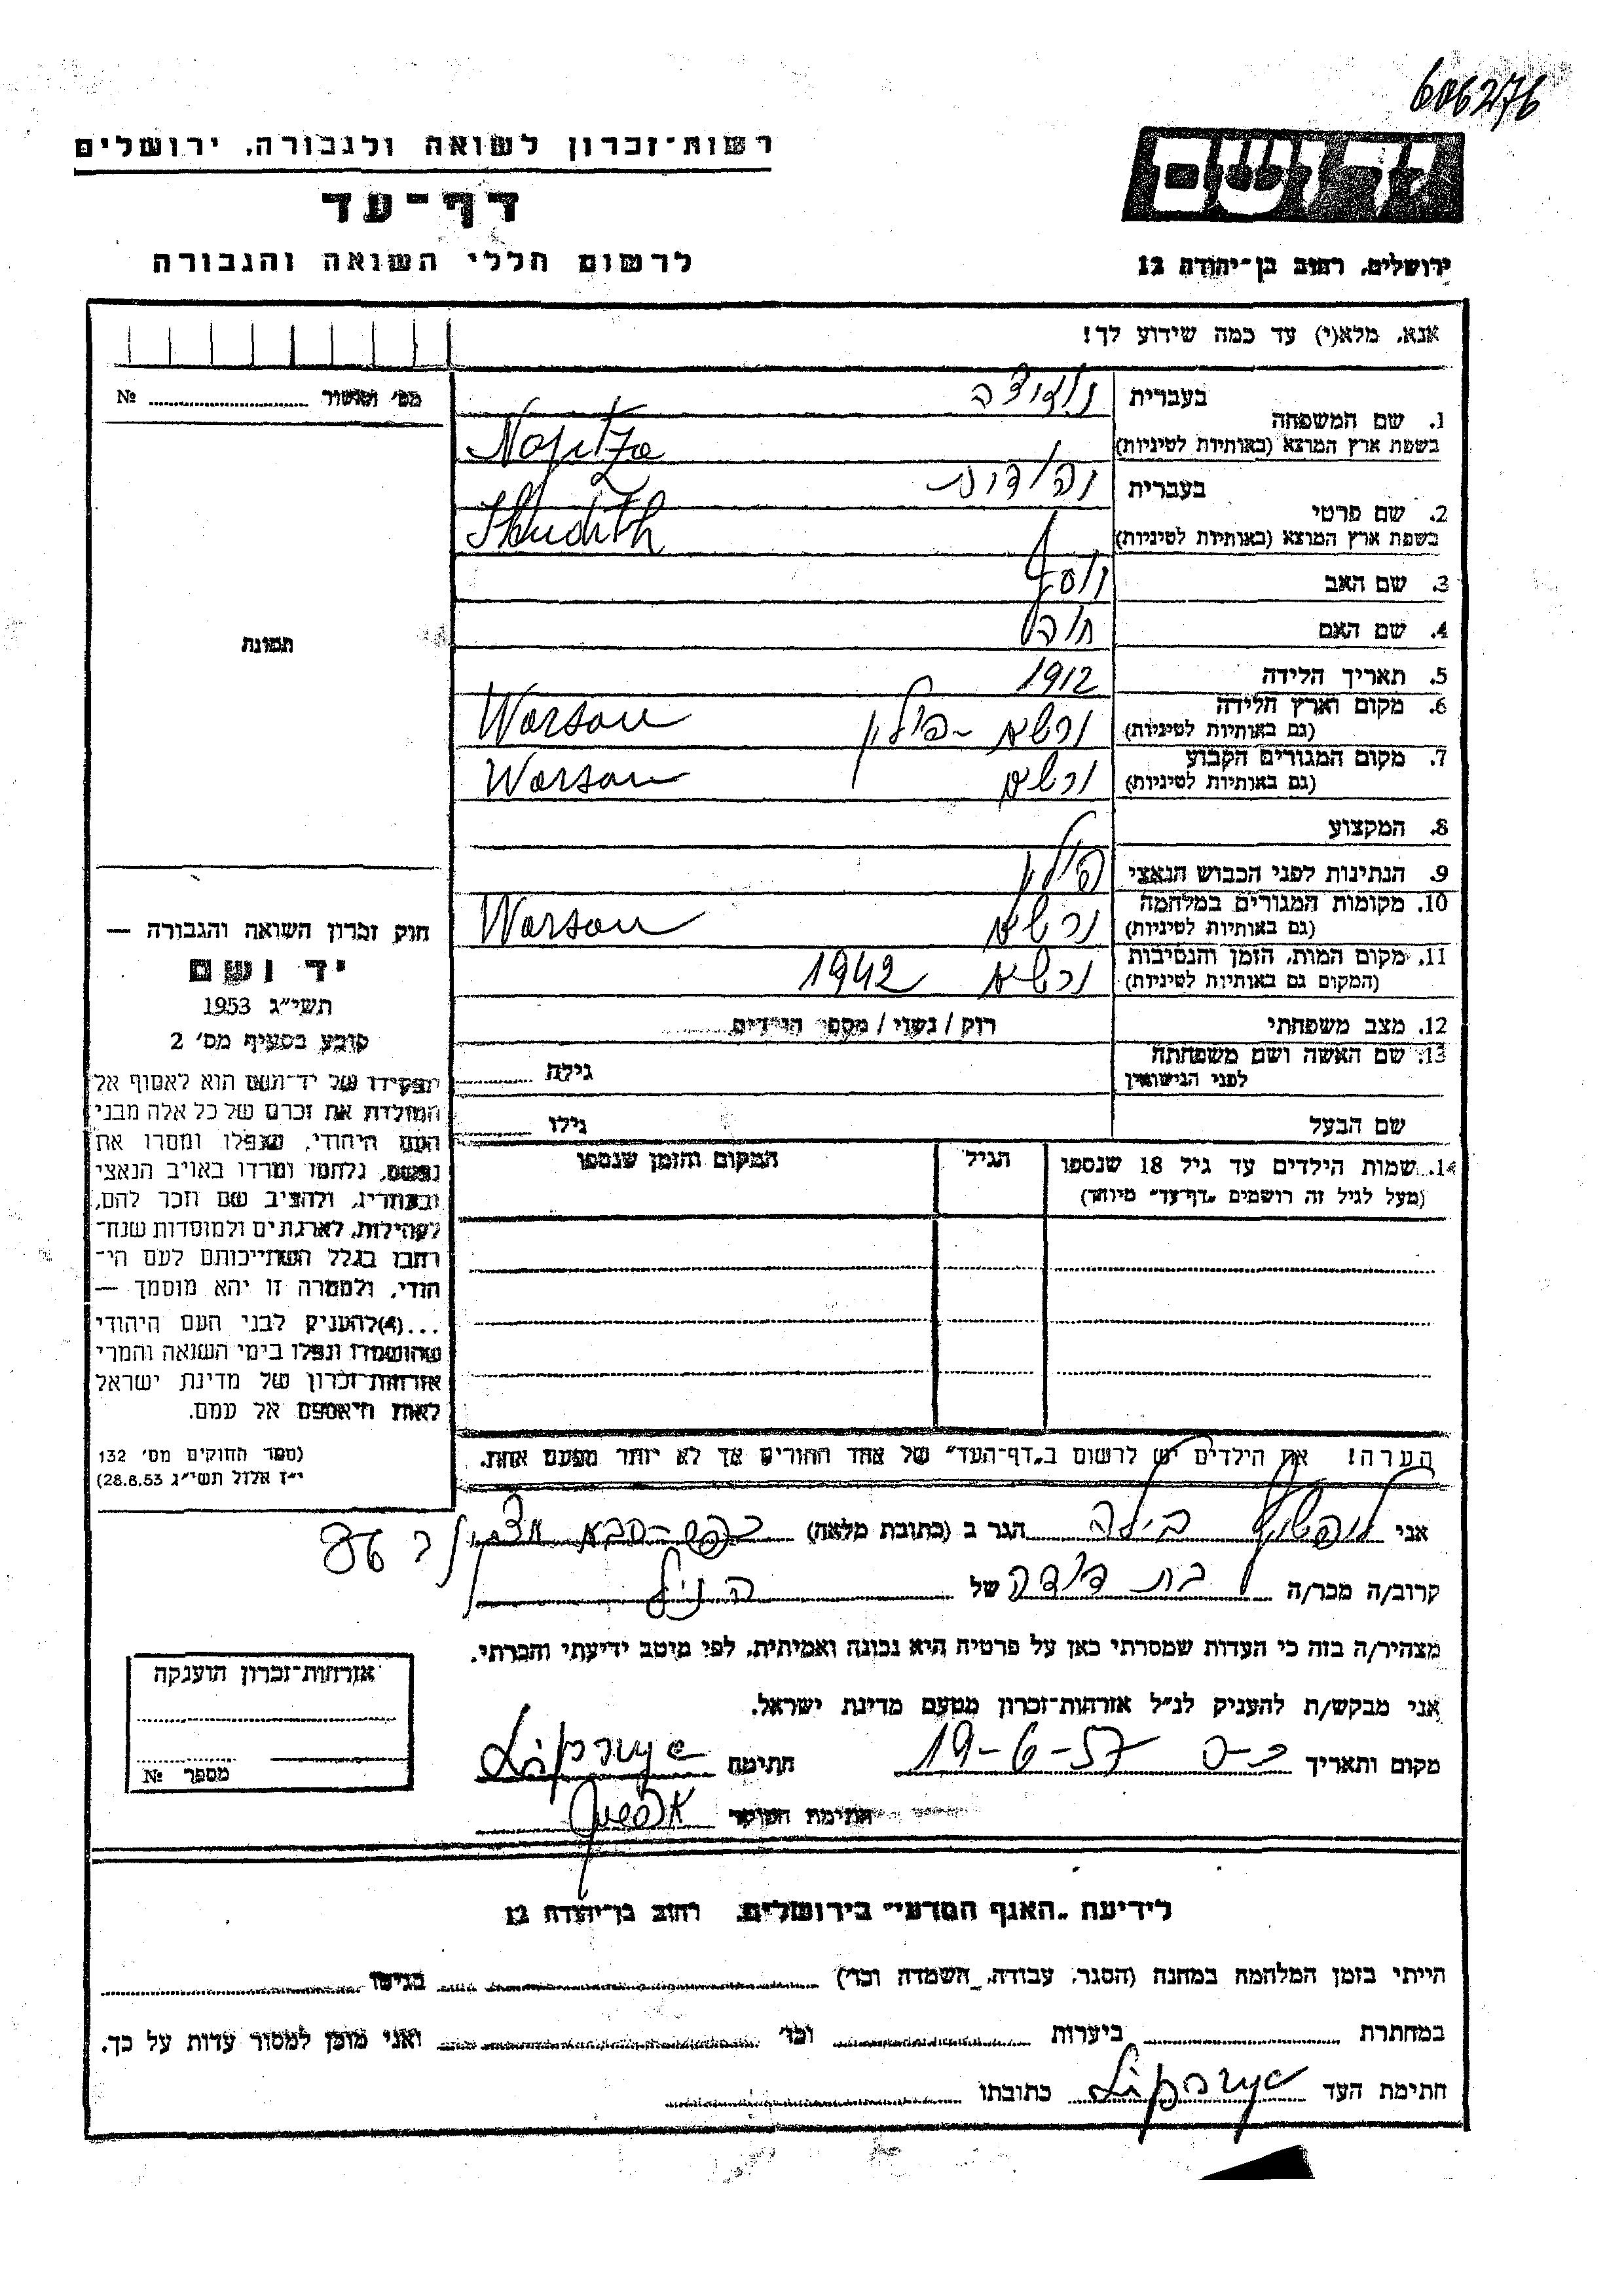 606276
רשות־זכרון לשואה ולגבורה, ירושלים
יד ושם
דף־עד
לרשום חללי השואה והגבורה
ירושלים, רחוב בן־יהודה 12
אנא, מלא(י) עד כמה שידוע לך!
מס' תאשור № ............
1. שם המשפחה
בעברית
בשפת ארץ המוצא (באותיות לטיניות)
2. שם פרטי
בעברית יהודית
בשפת ארץ המוצא (באותיות לטיניות)
3. שם האב יוסף
4. שם האם
5. תאריך הלידה 1912
6. מקום וארץ הלידה ורשא - פולין Warsau
(גם באותיות לטיניות)
7. מקום המגורים הקבוע ורשא Warsau
(גם באותיות לטיניות)
8. המקצוע
9. הנתינות לפני הכבוש הנאצי פולין
10. מקומות המגורים במלחמה ורשא Warsau
(גם באותיות לטיניות)
11. מקום המות, הזמן והנסיבות ורשא 1942
(המקום גם באותיות לטיניות)
12. מצב משפחתי רוק / נשוי / מספר הילדים
13. שם האשה ושם משפחתה
לפני הנישואין גילה
שם הבעל גילו
14. שמות הילדים עד גיל 18 שנספו
(מעל לגיל זה רושמים „דף־עד" מיוחד)
הגיל
המקום והזמן שנספו
הערה! את הילדים יש לרשום ב„דף־העד" של אחד ההורים אך לא יותר מפעם אחת.
תמונה
חוק זכרון השואה והגבורה —
יד ושם
תשי"ג 1953
קובע בסעיף מס' 2
תפקידו של יד־ושם הוא לאסוף אל
המולדת את זכרם של כל אלה מבני
העם היהודי, שנפלו ומסרו את
נפשם, נלחמו ומרדו באויב הנאצי
ובעוזריו, ולהציב שם וזכר להם,
לקהילות, לארגונים ולמוסדות שנח־
רבו בגלל השתייכותם לעם הי־
הודי, ולמטרה זו יהא מוסמך —
...(4) להעניק לבני העם היהודי
שהושמדו ונפלו בימי השואה והמרי
אזרחות־זכרון של מדינת ישראל
לאות היאספם אל עמם.
(ספר החוקים מס' 132
י"ז אלול תשי"ג 28.8.53)
אני הגר ב (כתובת מלאה) כפר-סבא
קרוב/ה מכר/ה בת דודה של הנ"ל
מצהיר/ה בזה כי העדות שמסרתי כאן על פרטיה היא נכונה ואמיתית, לפי מיטב ידיעתי והכרתי.
אני מבקש/ת להעניק לנ"ל אזרחות־זכרון מטעם מדינת ישראל.
מקום ותאריך כ-ס 19-6-57 חתימה
חתימת הפוקד
אזרחות־זכרון הוענקה
מספר №
לידיעת „האגף המדעי" בירושלים, רחוב בן־יהודה 12
הייתי בזמן המלחמה במחנה (הסגר, עבודה, השמדה וכו') בגיטו
במחתרת ביערות וכו' ואני מוכן למסור עדות על כך.
חתימת העד כתובתו